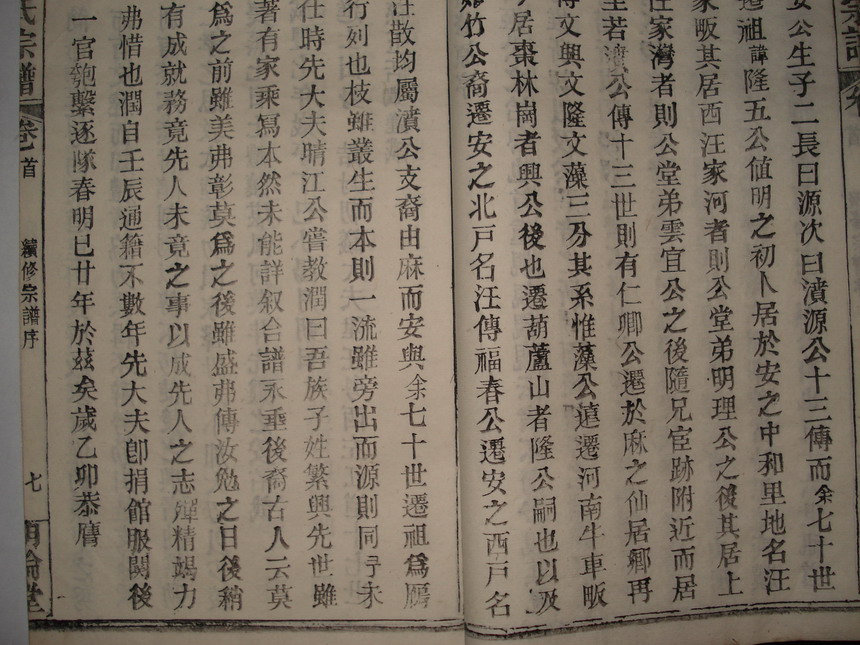 安公生子二長曰源次曰濆源公十三傳而余七十世
遷祖諱隆五公值明之初卜居於安之中和里地名汪
家畈其居西汪家河者則公堂弟明理公之後其居上
汪家灣者則公堂弟雲宜公之後隨兄宦跡附近而居
至若濆公傳十三世則有仁卿公遷於麻之仙居鄉再
傳文興文隆文藻三分其系惟藻公遠遷河南牛車畈
居棗林崗者興公後也遷葫蘆山者隆公嗣也以及
竹公裔遷安之北戸名汪傳福春公遷安之西戸名
汪散均屬濆公支裔由麻而安與余七十世遷祖為鴈
行列也枝雖叢生而本則一流雖旁出而源則同予未
仕時先大夫晴江公嘗教潤曰吾族子姓繁興先世雖
著有家乘寫本然未能詳叙合譜永垂後裔古人云莫
為之前雖美弗彰莫為之後雖盛弗傳汝勉之日後稍
有成就務竟先人未竟之事以成先人之志殫精竭力
弗惜也潤自壬辰通籍不數年先大夫卽捐館服闋後
一官匏繫逐隊春明巳廿年於兹矣歲乙卯恭膺
氏宗譜 卷首 續修宗譜序 七 明倫堂